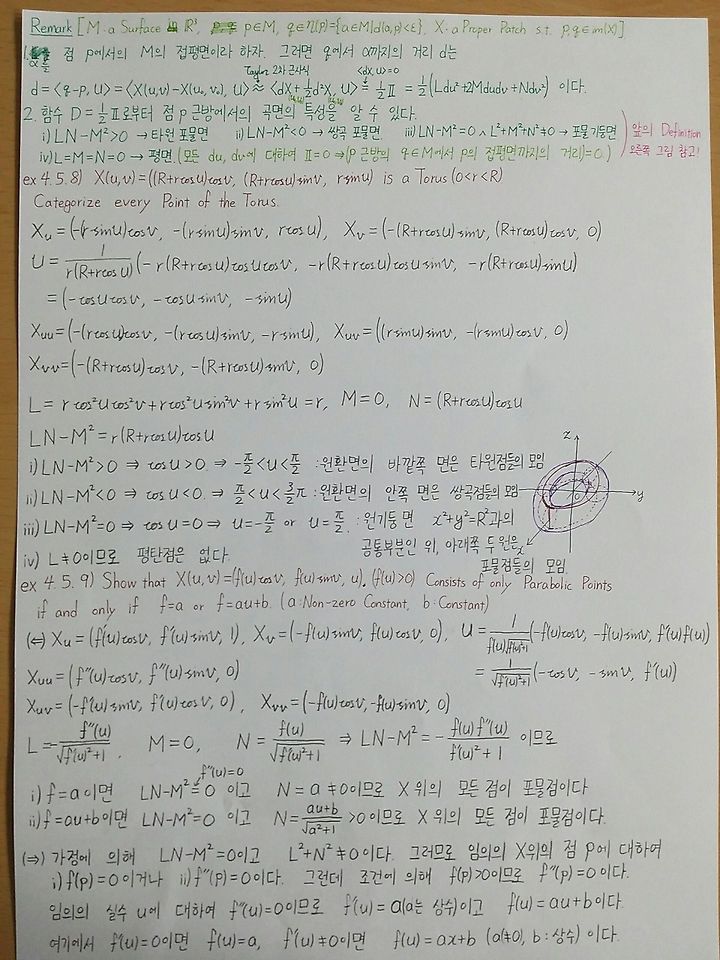 Remark [M: a Surface in ℝ³, p∈M, q∈η(p)={a∈M|d(a,p)<ε}, X: a Proper Patch s.t. p,q∈im(X)]
1. 점 p에서의 M의 접평면이라 하자. 그러면 q에서 α까지의 거리 d는
Taylor 2차 근사식 <dX, U>=0
d = <q-p, U> = <X(u,v)-X(u₀,v₀), U> ≈ <dX+½d²X, U> = ½Ⅱ = ½(Ldu²+2Mdudv+Ndv²) 이다.
2. 함수 D=½Ⅱ로부터 점 p 근방에서의 곡면의 특성을 알 수 있다.
i) LN-M²>0 → 타원 포물면 ii) LN-M²<0 → 쌍곡 포물면 iii) LN-M²=0 ∧ L²+M²+N²≠0 → 포물기둥면
앞의 Definition
오른쪽 그림 참고!
iv) L=M=N=0 → 평면 (모든 du, dv에 대하여 Ⅱ=0 ⇒ (p 근방의 q∈M에서 p의 접평면까지의 거리)=0.)
ex 4.5.8) X(u,v)=((R+rcosu)cosv, (R+rcosu)sinv, rsinu) is a Torus (0<r<R)
Categorize every Point of the Torus.
Xu=(-(rsinu)cosv, -(rsinu)sinv, rcosu), Xv=(-(R+rcosu)sinv, (R+rcosu)cosv, 0)
U = 1/r(R+rcosu) (-r(R+rcosu)cosucosv, -r(R+rcosu)cosusinv, -r(R+rcosu)sinu)
=(-cosucosv, -cosusinv, -sinu)
Xuu=(-(rcosu)cosv, -(rcosu)sinv, -rsinu), Xuv=((rsinu)sinv, -(rsinu)cosv, 0)
Xvv=(-(R+rcosu)cosv, -(R+rcosu)sinv, 0)
L = rcos²ucos²v+rcos²usin²v+rsin²u=r, M=0, N=(R+rcosu)cosu
LN-M²=r(R+rcosu)cosu
i) LN-M²>0 ⇒ cosu>0. ⇒ -π/2<u<π/2 : 원환면의 바깥쪽 면은 타원점들의 모임
ii) LN-M²<0 ⇒ cosu<0. ⇒ π/2<u<3/2π : 원환면의 안쪽 면은 쌍곡점들의 모임
iii) LN-M²=0 ⇒ cosu=0 ⇒ u=-π/2 or u=π/2. : 원기둥면 x²+y²=R²과의
공통부분인 위, 아래쪽 두 원은
포물점들의 모임.
z
y
x
iv) L≠0이므로 평탄점은 없다.
ex 4.5.9) Show that X(u,v)=(f(u)cosv, f(u)sinv, u), (f(u)>0) Consists of only Parabolic Points
if and only if f=a or f=au+b. (a: Non-zero Constant, b: Constant)
(⇐) Xu=(f'(u)cosv, f'(u)sinv, 1), Xv=(-f(u)sinv, f(u)cosv, 0), U = 1/f(u)√f'(u)²+1 (-f(u)cosv, -f(u)sinv, f'(u)f(u))
Xuu=(f''(u)cosv, f''(u)sinv, 0) = 1/√f'(u)²+1 (-cosv, -sinv, f'(u))
Xuv=(-f'(u)sinv, f'(u)cosv, 0), Xvv=(-f(u)cosv, -f(u)sinv, 0)
L=-f''(u)/√f'(u)²+1, M=0, N=f(u)/√f'(u)²+1 ⇒ LN-M²=-f(u)f''(u)/f'(u)²+1 이므로
f''(u)=0
i) f=a이면 LN-M²=0 이고 N=a≠0이므로 X 위의 모든 점이 포물점이다
ii) f=au+b이면 LN-M²=0 이고 N=au+b/√a²+1 >0이므로 X 위의 모든 점이 포물점이다.
(⇒) 가정에 의해 LN-M²=0이고 L²+N²≠0이다. 그러므로 임의의 X위의 점 p에 대하여
i) f(p)=0이거나 ii) f''(p)=0이다. 그런데 조건에 의해 f(p)>0이므로 f''(p)=0이다.
임의의 실수 u에 대하여 f''(u)=0이므로 f'(u)=a(a는 상수)이고 f(u)=au+b이다.
여기에서 f'(u)=0이면 f(u)=a, f'(u)≠0이면 f(u)=ax+b (a≠0), b:상수)이다.